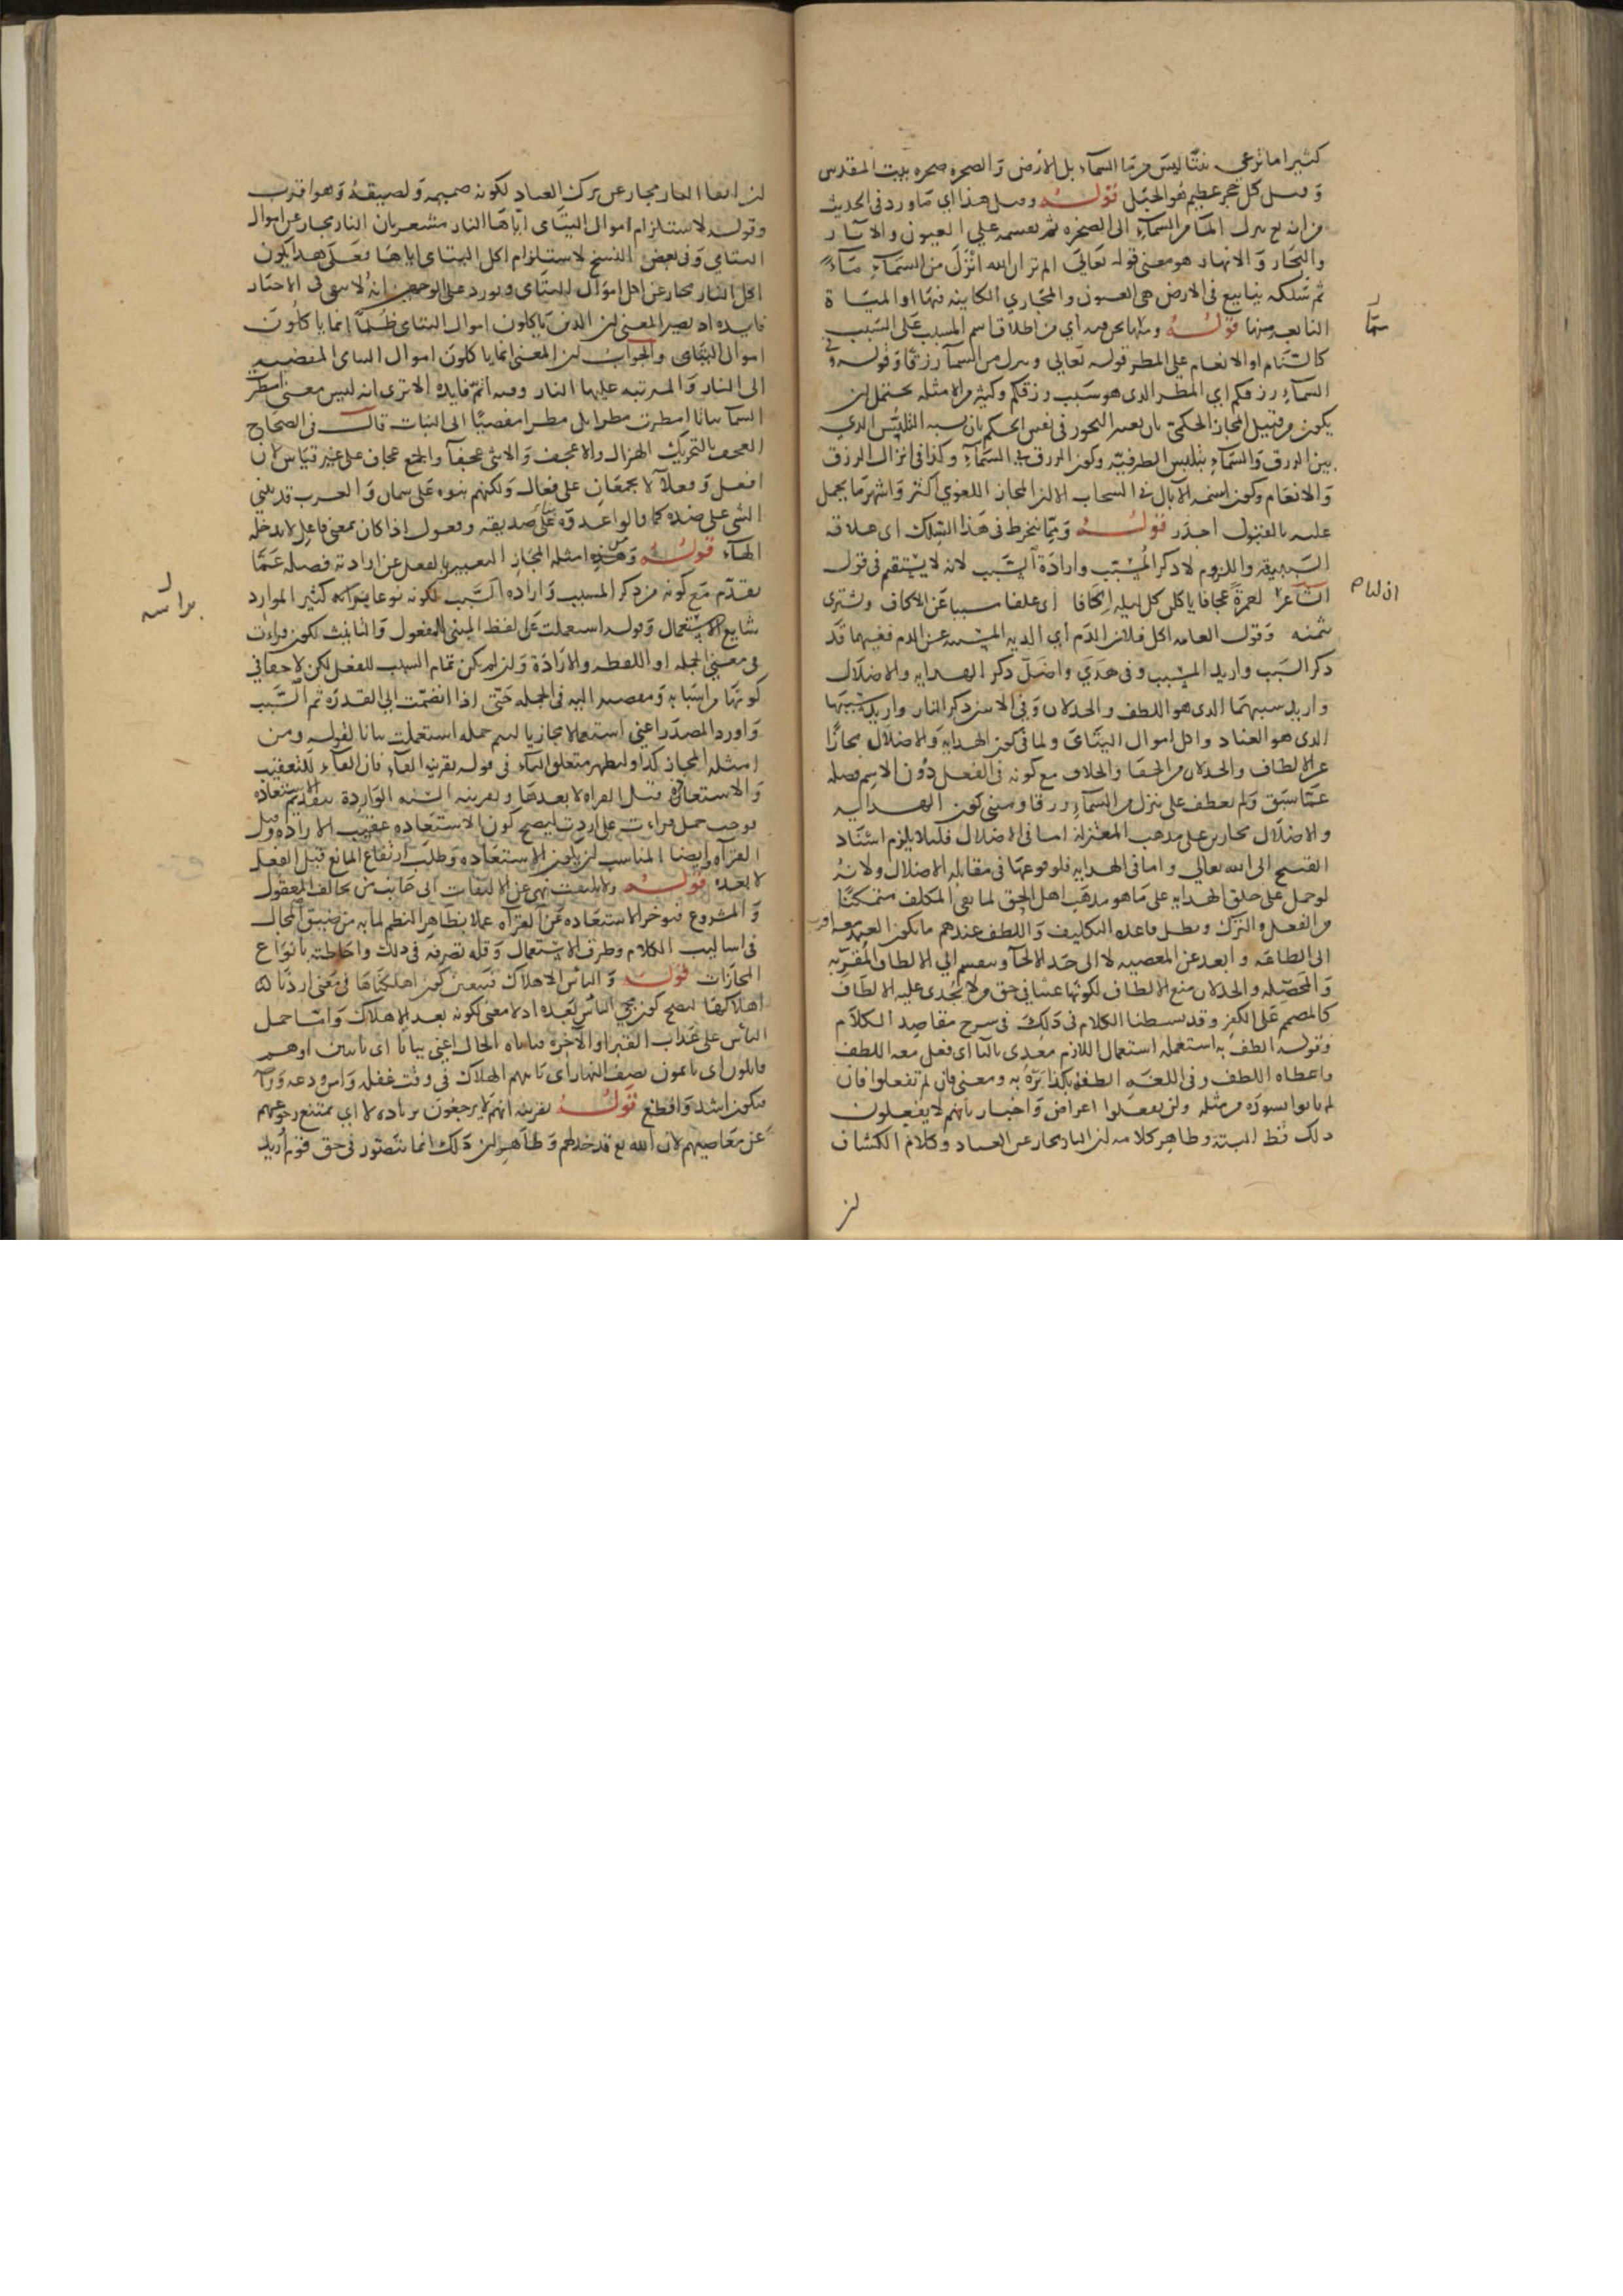 كثيرا ما ترعى نبتا ليس من ماء السماء بل الارض والصخرة صخرة بيت المقدس
وقيل كل حجر عظيم هو الجبل قوله وقيل هذا اى ما ورد فى الحديث
من انه تع ينزل الماء من السماء الى الصخرة ثم يقسمه على العيون والابار
والبحار والانهار هو معنى قوله تعالى الم تر ان الله انزل من السماء ماء
ثم سلكه ينابيع فى الارض هى العيون والمجارى الكاينة فيها او المياة
النابعة منها قوله ومما نحن فيه اى من اطلاق اسم المسبب على السبب
كالسنام او الانعام على المطر قوله تعالى وينزل من السماء رزقا وقوله وفى
السماء رزقكم اى المطر الذى هو سبب رزقكم وكثير من الامثلة يحتمل ان
يكون من قبيل المجاز الحكمى بان يعتبر التجوز فى نفس الحكم بان يشبه التلبس الذى
بين الرزق والسماء بتلبس الظرفية وكون الرزق فى السماء وكذا فى انزال الرزق
والانعام وكون اسنمة الابال فى السحاب الا ان المجاز اللغوى اكثر واشهر فالحمل
عليه بالقبول اجدر قوله ومما ينخرط فى هذا السلك اى علاقة
السببية واللزوم لا ذكر المسبب وارادة السبب لانه لا يستقيم فى قول
الشاعر لعمرة عجافا ياكلن كل ليلة اكافا اى علفا مسببا عن الاكاف ويشترى
بثمنه وقول العامة اكل فلان الدم اى الدية المسببة عن الدم ففيهما قد
ذكر السبب واريد المسبب وفى هدى واضل ذكر الهداية والاضلال
واريد سببهما الذى هو اللطف والخذلان وفى الاخر ذكر النار واريد سببها
الذى هو العناد واكل اموال اليتامى ولما فى كون الهداية والاضلال مجازا
عن الالطاف والخذلان من الخفا والخلاف مع كونه فى الفعل دون الاسم فصله
عما سبق ولم يعطف على ينزل من السماء رزقا ومبنى كون الهداية
والاضلال مجازين على مذهب المعتزلة اما فى الاضلال فلئلا يلزم اسناد
القبيح الى الله تعالى واما فى الهداية فلوقوعها فى مقابلة الاضلال ولانه
لو حمل على خلق الهداية على ما هو مذهب اهل الحق لما بقى المكلف متمكنا
من الفعل والترك وبطل قاعدة التكليف واللطف عندهم ما يكون العبد معه اقرب
الى الطاعة وابعد عن المعصية لا الى حد الالجاء وينقسم الى الالطاف المقربة
والمحصلة والخذلان منع الالطاف لكونها عبثا فى حق من لا يجدى عليه الالطاف
كالمصمم على الكفر وقد بسطنا الكلام فى ذلك فى شرح مقاصد الكلام
وقوله الطف به استعمله استعمال اللازم معدى بالباء اى فعل معه اللطف
واعطاه اللطف وفى اللغة الطفه بكذا بره به ومعنى فان لم تفعلوا فان
لم ياتوا بسورة من مثله ولن تفعلوا اعراض واخبار بانهم لا يفعلون
ذلك قط البتة وظاهر كلامه ان النار مجاز عن العناد وكلام الكشاف
ان
ان اتقاء النار مجاز عن ترك العناد لكونه صميمه ولصيقه وهو اقرب
وقوله لاستلزام اموال اليتامى اياها النار مشعر بان النار مجاز عن اموال
اليتامى وفى بعض النسخ لاستلزام اكل اليتامى اياها فعلى هذا يكون
اكل النار مجازا عن اكل اموال اليتامى ويورد على الوجهين انه لا يبقى فى الاخبار
فايدة اذ يصير المعنى ان الذين ياكلون اموال اليتامى ظلما انما ياكلون
اموال اليتامى والجواب ان المعنى انما ياكلون اموال اليتامى المفضية
الى النار والمترتبة عليها النار وفيه اتم فايدة الا ترى انه ليس معنى امطرت
السماء نباتا امطرت مطرا بل مطرا مفضيا الى النبات قال فى الصحاح
العجف بالتحريك الهزال والاعجف والانثى عجفاء والجمع عجاف على غير قياس لان
افعل وفعلاء لا يجمعان على فعال ولكنهم بنوه على سمان والعرب قد تبنى
الشى على ضده كما قالوا عدوة بناء على صديقة وفعول اذا كان بمعنى فاعل لا تدخله
الهاء قوله ومن امثلة المجاز التعبير بالفعل عن ارادته فصله عما
تقدم مع كونه من ذكر المسبب وارادة السبب لكونه نوعا براسه كثير الموارد
شايع الاستعمال وقوله استعملت على لفظ المبنى للمفعول والتانيث لكون قراءت
فى معنى الجملة او اللفظة والارادة وان لم يكن تمام السبب للفعل لكن لا خفا فى
كونها من اسبابه ومفضية اليه فى الجملة حتى اذا انضمت الى القدرة ثم السبب
واورد المصدر اعنى استعمالا مجازيا ليتم جملة استعملت بيانا لقوله ومن
امثلة المجاز كذا وليظهر متعلق الباء فى قوله بقرينة الفاء فان الفاء للتعقيب
والاستعاذة قبل القراءة لا بعدها وبقرينة السنة الواردة بتقديم الاستعاذة
يوجب حمل قراءت على اردت ليصح كون الاستعاذة عقيب الارادة وقبل
القراءة وايضا المناسب ان يكون الاستعاذة وطلب ارتفاع المانع قبل الفعل
لا بعده قوله ولا يلتفت نهى عن الالتفات الى جانب من يخالف المعقول
والمشروع فيوخر الاستعاذة عن القراءة عملا بظاهر النظم لما به من ضيق المجال
فى اساليب الكلام وطرق الاستعمال وقلة تصرفه فى ذلك واحاطته بانواع
المجازات قوله والباس الاهلاك فيتعين كون اهلكناها فى معنى اردنا
اهلاكها ليصح كون مجى الباس بعده اذ لا معنى لكونه بعد الاهلاك واما حمل
الباس على عذاب القبر او الاخرة فياباه الحال اعنى بياتا اى بايتين او هم
قايلون اى نايمون نصف النهار اى ياتيهم الهلاك فى وقت غفلة وامن ودعة وراحة
فيكون اشد وافظع قوله بقرينة انهم لا يرجعون بزيادة لا اى يمتنع رجوعهم
عن معاصيهم لان الله تع قد خذلهم وظاهر ان ذلك انما يتصور فى حق قوم اريد